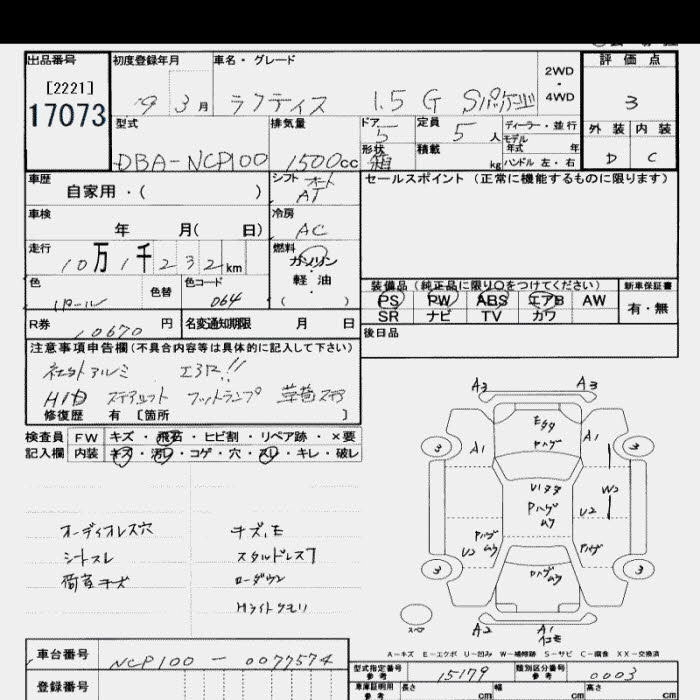 出品番号 初度登録年月 車名・グレード 2WD・4WD 評価点
[2221]
17073
19 3月 ラクティス 1.5 G Sパッケージ 3
外装 内装
D C
型式 排気量 ドア 5 定員 5人 ディーラー・並行
形状 箱 積載 kg モデル年式 年
ハンドル 左・右
DBA-NCP100 1500cc
車歴 シフト オート AT セールスポイント (正常に機能するものに限ります)
自家用・( )
車検 冷房
年 月( 日) AC
走行 燃料
10万1千232km ガソリン
軽油
( )
色 色替 色コード 装備品(純正品に限り〇をつけてください) 新車保証書
パール 064 PS PW ABS エアB AW 有・無
R券 10670円 名変通知期限 月 日 SR ナビ TV カワ
後日品
注意事項申告欄(不具合内容等は具体的に記入して下さい)
社外アルミ エアロ!!
HID ステアシフト フットランプ
修復歴 有 [箇所 ]
検査員 FW キズ・飛石・ヒビ割・リペア跡・×要
記入欄 内装 キズ・汚レ・コゲ・穴・スレ・キレ・破レ
オーディオレス穴 キズ、モ
シートスレ スタルドレス7
荷室キズ ローダウン
Hライトクモリ
A3 A3
エクダ
Pハゲ
3 A1 A1 3
Pハゲ
U2 W2
Pハゲ
U2 Pハゲ
3 Pハゲ 3
スペア
A2 A1
A-キズ E-エクボ U-凹み W-補修跡 S-サビ C-腐食 XX-交換済
車台番号 NCP100-0077574
型式指定番号 参考 15179 類別区分番号 参考 0003
登録番号 車庫証明用 参考 長さ cm 幅 cm 高さ cm